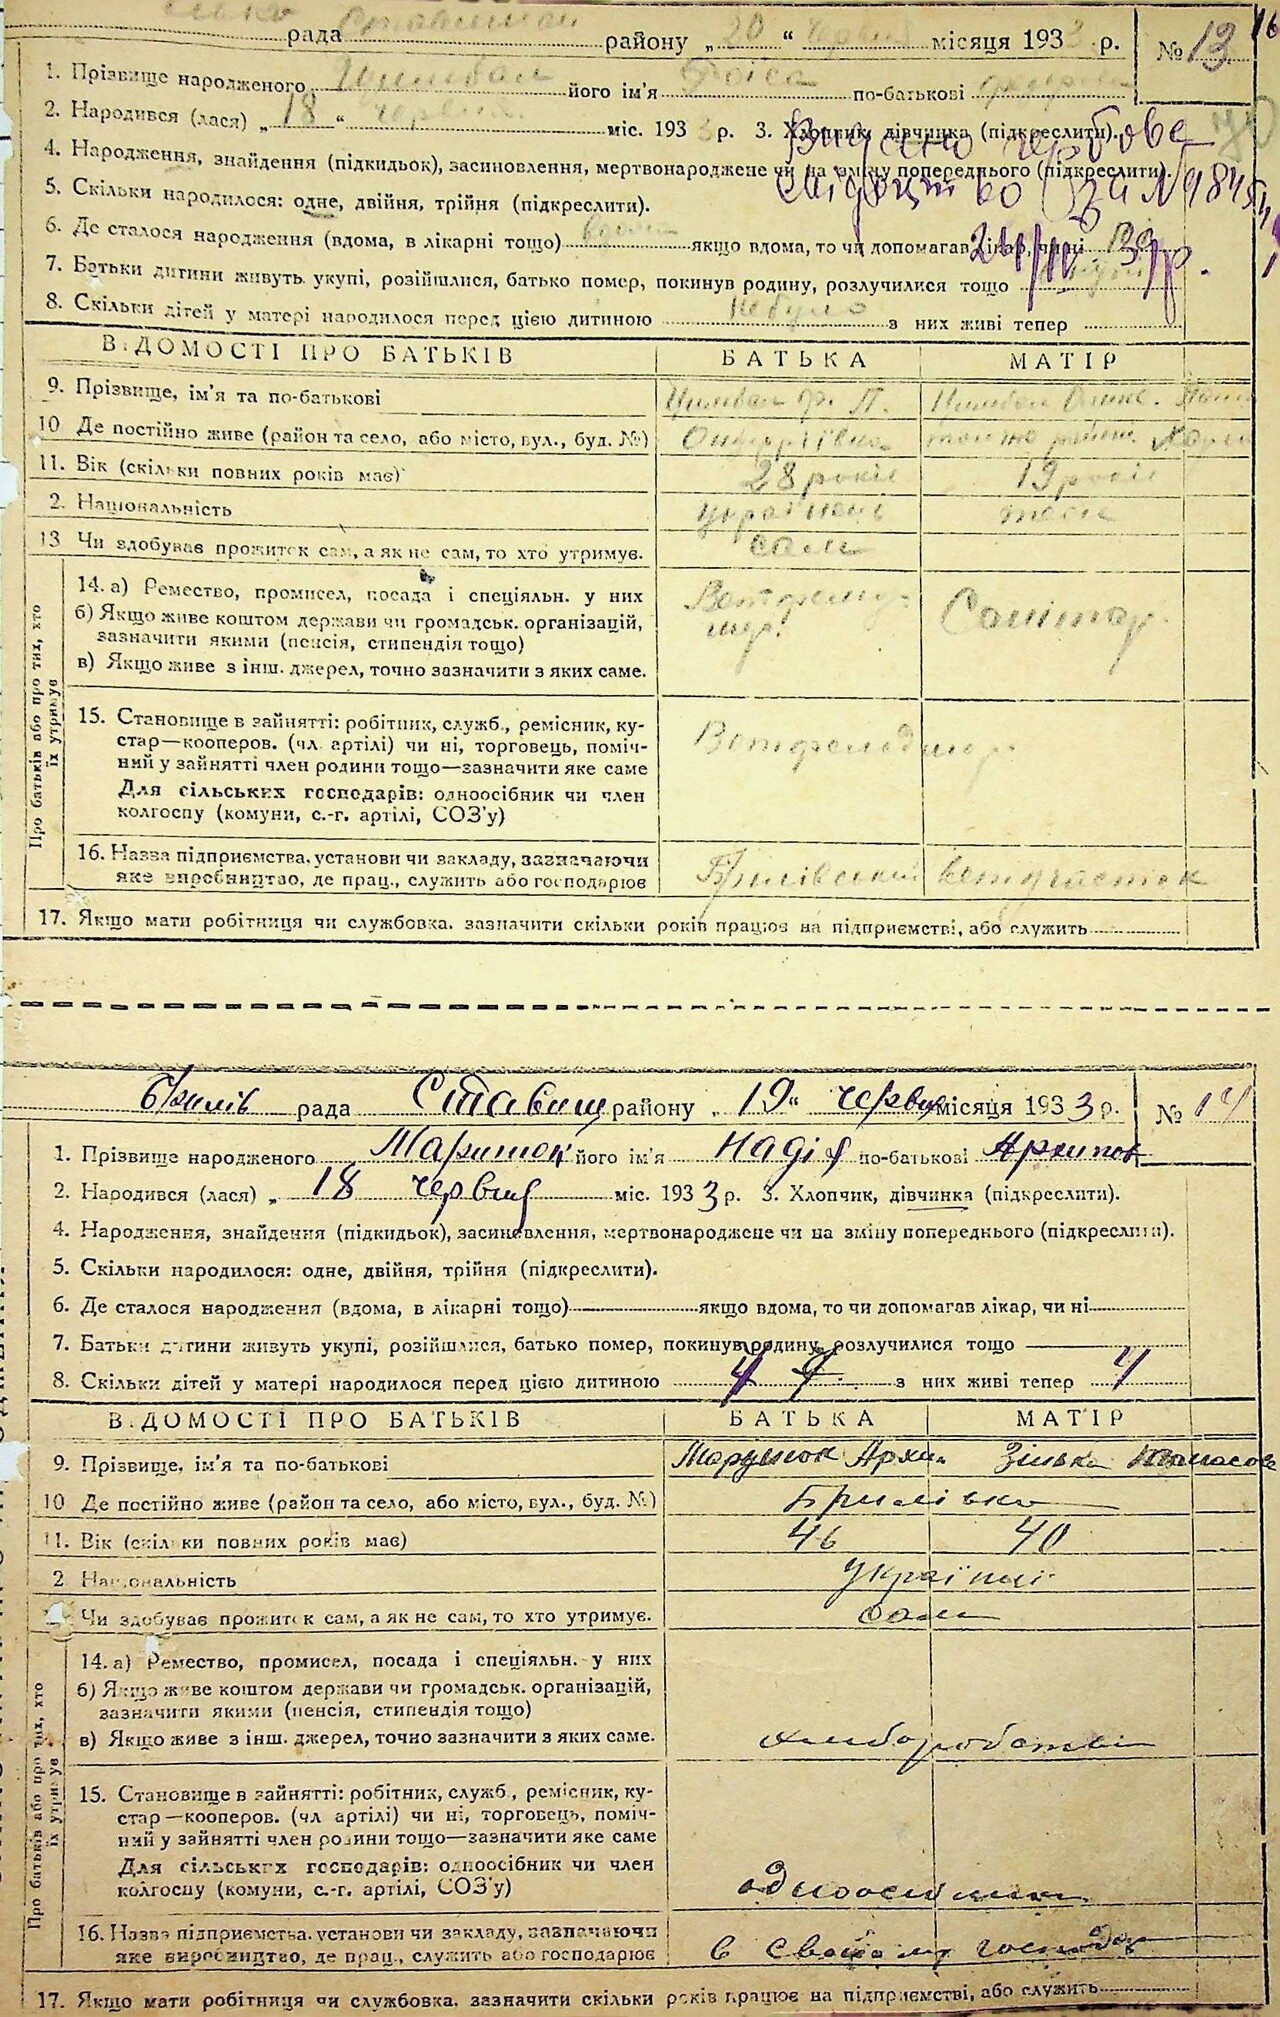 рада району „20“ червня місяця 1933 р. № 13 16
1. Прізвище народженого Цимбал його ім'я Раїса по-батькові
2. Народився (лася) „18“ червня міс. 1933 р. 3. Хлопчик, дівчинка (підкреслити).
Видано гербове
4. Народження, знайдення (підкидьок), засиновлення, мертвонароджене чи на зміну попереднього (підкреслити).
свідоцтво за №
5. Скільки народилося: одне, двійня, трійня (підкреслити).
6. Де сталося народження (вдома, в лікарні тощо) вдома якщо вдома, то чи допомагав лікар, чи ні
24/IV 39р.
7. Батьки дитини живуть укупі, розійшлися, батько помер, покинув родину, розлучилися тощо
8. Скільки дітей у матері народилося перед цією дитиною небуло з них живі тепер
ВІДОМОСТІ ПРО БАТЬКІВ БАТЬКА МАТІР
9. Прізвище, ім'я та по-батькові Цимбал Цимбал
10 Де постійно живе (район та село, або місто, вул., буд. №)
11. Вік (скільки повних років має) 28 років 19 років
2. Національність українець теж
13 Чи здобуває прожиток сам, а як не сам, то хто утримує. сам
Про батьків або про тих, хто їх утримує
14. а) Ремество, промисел, посада і спеціяльн. у них
б) Якщо живе коштом держави чи громадськ. організацій, зазначити якими (пенсія, стипендія тощо) Санітар.
в) Якщо живе з інш. джерел, точно зазначити з яких саме.
15. Становище в зайнятті: робітник, служб., ремісник, ку-
стар—кооперов. (чл. артілі) чи ні, торговець, поміч- Ветфельдшер
ний у зайнятті член родини тощо—зазначити яке саме
Для сільських господарів: одноосібник чи член
колгоспу (комуни, с.-г. артілі, СОЗ'у)
16. Назва підприємства, установи чи закладу, зазначаючи
яке виробництво, де прац., служить або господарює Брилівський ветучасток
17. Якщо мати робітниця чи службовка, зазначити скільки років працює на підприємстві, або служить
Брилів рада Ставищ району „19“ червня місяця 1933 р. № 14
1. Прізвище народженого Марушок його ім'я Надія по-батькові Архипов
2. Народився (лася) „18 червня міс. 1933 р. 3. Хлопчик, дівчинка (підкреслити).
4. Народження, знайдення (підкидьок), засиновлення, мертвонароджене чи на зміну попереднього (підкреслити).
5. Скільки народилося: одне, двійня, трійня (підкреслити).
6. Де сталося народження (вдома, в лікарні тощо) якщо вдома, то чи допомагав лікар, чи ні
7. Батьки дитини живуть укупі, розійшлися, батько помер, покинув родину, розлучилися тощо
8. Скільки дітей у матері народилося перед цією дитиною 4 з них живі тепер 4
ВІДОМОСТІ ПРО БАТЬКІВ БАТЬКА МАТІР
9. Прізвище, ім'я та по-батькові Марушок Архи Зінька
10 Де постійно живе (район та село, або місто, вул., буд. №) Брилівка
11. Вік (скільки повних років має) 46 40
2 Національність українці
Чи здобуває прожиток сам, а як не сам, то хто утримує. сам
Про батьків або про тих, хто їх утримує
14. а) Ремество, промисел, посада і спеціяльн. у них
б) Якщо живе коштом держави чи громадськ. організацій,
зазначити якими (пенсія, стипендія тощо)
в) Якщо живе з інш. джерел, точно зазначити з яких саме. хліборобство
15. Становище в зайнятті: робітник, служб., ремісник, ку-
стар—кооперов. (чл артілі) чи ні, торговець, поміч-
ний у зайнятті член родини тощо—зазначити яке саме
Для сільських господарів: одноосібник чи член
колгоспу (комуни, с.-г. артілі, СОЗ'у) одноосібник
16. Назва підприємства, установи чи закладу, зазначаючи
яке виробництво, де прац., служить або господарює в своїому господар
17. Якщо мати робітниця чи службовка, зазначити скільки років працює на підприємстві, або служить